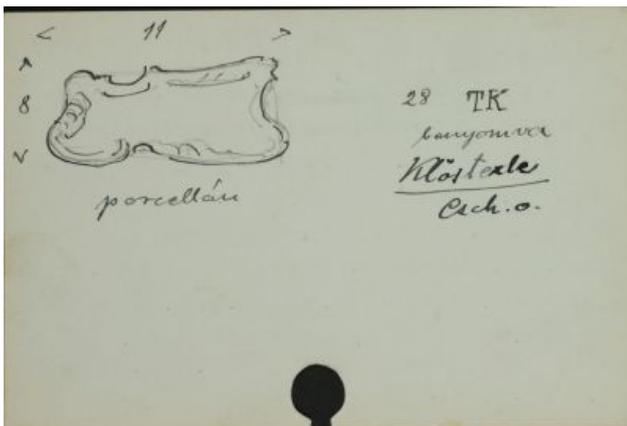 < 11 >
^
8
v
porcellán
28 TK
benyomva
Klösterle
Csch.o.